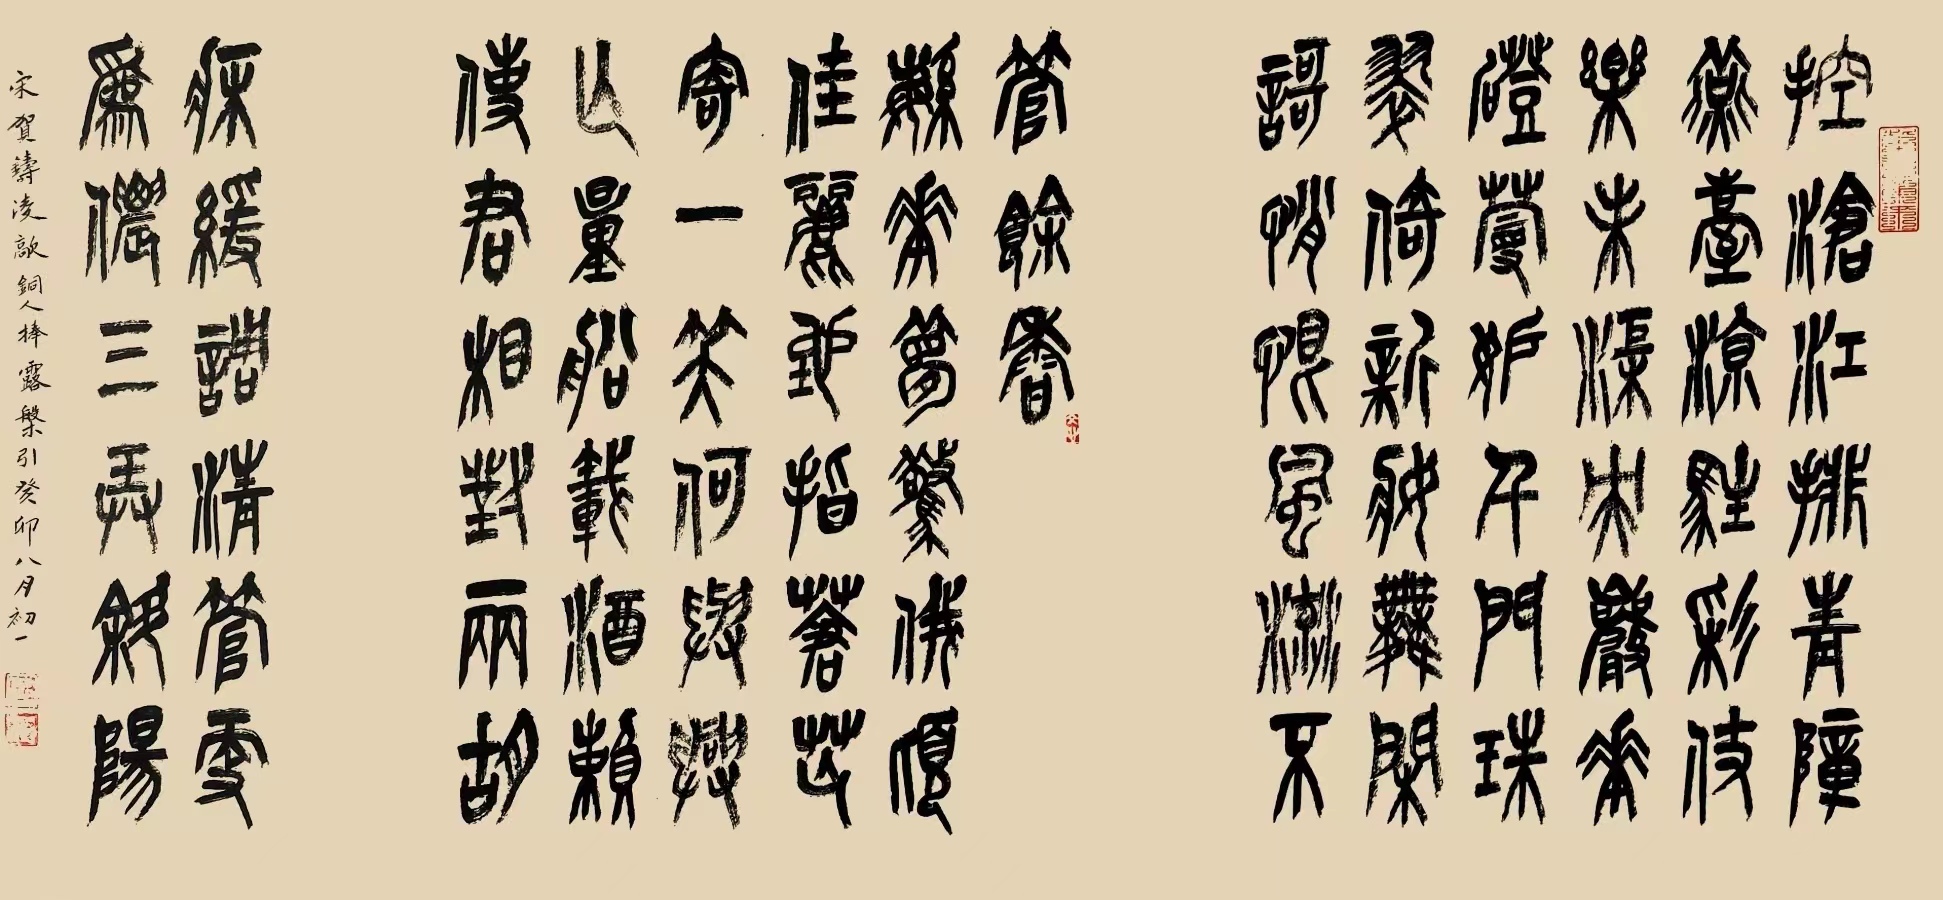 控滄江排青障
燕臺涼駐彩仗
樂未渠央嚴花
磴蔓妒千門珠
翠倚新妝舞閑
謌悄恨風流不
管餘香
繁華夢驚俄頃
佳麗地指蒼茫
寄一笑何與興
亡量船載酒賴
使君相對兩胡
牀緩調清管更
爲儂三弄斜陽
宋賀鑄凌歊銅人捧露槃引癸卯八月初一